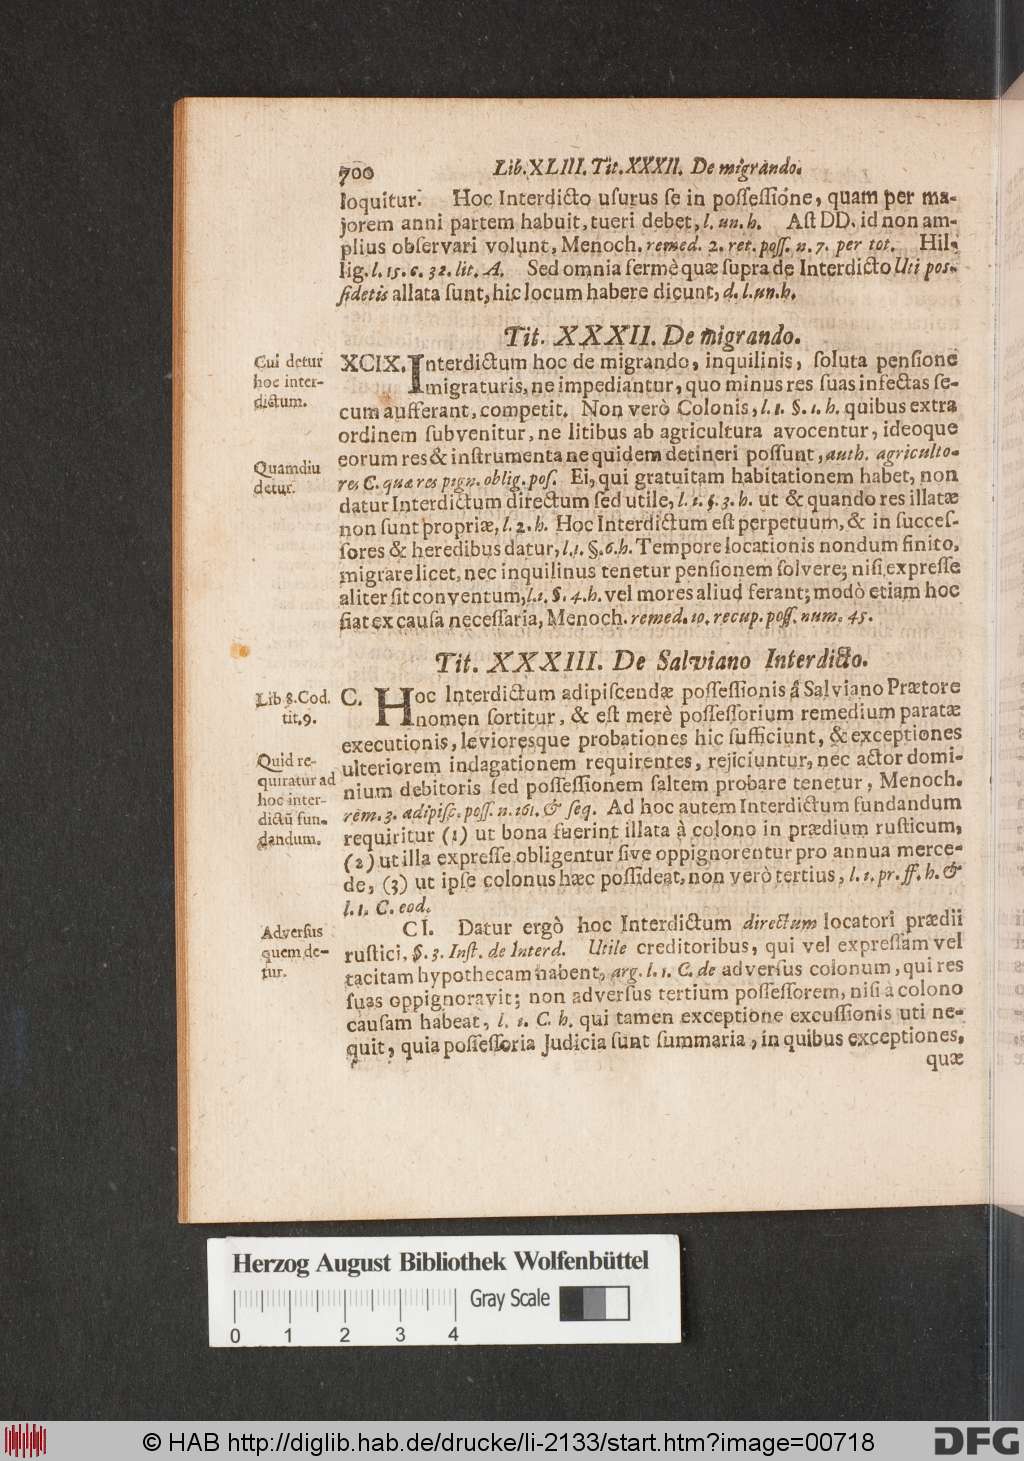 700 Lib. XLIII. Tit. XXXII. De migrando.
loquitur. Hoc Interdicto uſurus ſe in poſſeſſione, quam per ma-
jorem anni partem habuit, tueri debet, l. un. h. Aſt DD. id non am-
plius obſervari volunt, Menoch. remed. 2. ret. poſſ. n. 7. per tot. Hil-
lig. l. 15. c. 32. lit. A. Sed omnia fermè quæ ſupra de Interdicto Uti poſ-
ſidetis allata ſunt, hic locum habere dicunt, d. l. un. h.
Tit. XXXII. De migrando.
Cui detur
hoc inter-
dictum.
XCIX. Interdictum hoc de migrando, inquilinis, ſoluta penſione
migraturis, ne impediantur, quo minus res ſuas infectas ſe-
cum aufferant, competit. Non verò Colonis, l. 1. §. 1. h. quibus extra
ordinem ſubvenitur, ne litibus ab agricultura avocentur, ideoque
eorum res & inſtrumenta ne quidem detineri poſſunt, auth. agriculto-
Quamdiu
detur.
res C. quæ res pign. oblig. poſ. Ei, qui gratuitam habitationem habet, non
datur Interdictum directum ſed utile, l. 1. §. 3. h. ut & quando res illatæ
non ſunt propriæ, l. 2. h. Hoc Interdictum eſt perpetuum, & in ſucceſ-
ſores & heredibus datur, l. 1. §. 6. h. Tempore locationis nondum finito,
migrare licet, nec inquilinus tenetur penſionem ſolvere; niſi expreſſe
aliter ſit conventum, l. 1. §. 4. h. vel mores aliud ferant; modò etiam hoc
fiat ex cauſa neceſſaria, Menoch. remed. 10. recup. poſſ. num. 45.
Tit. XXXIII. De Salviano Interdicto.
Lib 8. Cod.
tit. 9.
C. Hoc Interdictum adipiſcendæ poſſeſſionis á Salviano Prætore
nomen ſortitur, & eſt merè poſſeſſorium remedium paratæ
executionis, levioresque probationes hic ſufficiunt, & exceptiones
Quid re-
quiratur ad
hoc inter-
dictū fun-
dandum.
ulteriorem indagationem requirentes, rejiciuntur, nec actor domi-
nium debitoris ſed poſſeſſionem ſaltem probare tenetur, Menoch.
rem. 3. adipiſc. poſſ. n. 161. & ſeq. Ad hoc autem Interdictum fundandum
requiritur (1) ut bona fuerint illata à colono in prædium ruſticum,
(2) ut illa expreſſe obligentur ſive oppignorentur pro annua merce-
de, (3) ut ipſe colonus hæc poſſideat, non verò tertius, l. 1. pr. ff. h. &
l. 1. C. eod.
Adverſus
quem de-
tur.
CI. Datur ergò hoc Interdictum directum locatori prædii
ruſtici, §. 3. Inſt. de Interd. Utile creditoribus, qui vel expreſſam vel
tacitam hypothecam habent, arg. l. 1. C. de adverſus colonum, qui res
ſuas oppignoravit; non adverſus tertium poſſeſſorem, niſi à colono
cauſam habeat, l. 1. C. h. qui tamen exceptione excuſſionis uti ne-
quit, quia poſſeſſoria Judicia ſunt ſummaria, in quibus exceptiones,
quæ
Herzog August Bibliothek Wolfenbüttel
Gray Scale
0 1 2 3 4
© HAB http://diglib.hab.de/drucke/li-2133/start.htm?image=00718
DFG